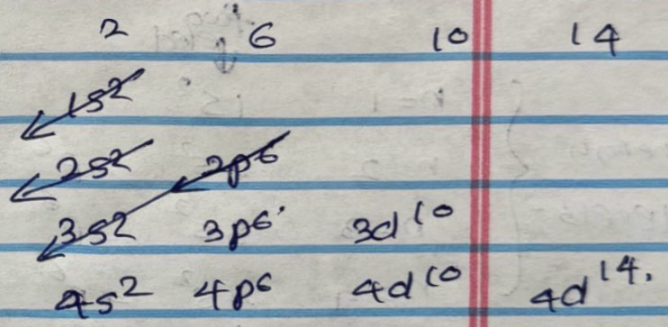 2 6 10 14
1s²
2s² 2p⁶
3s² 3p⁶ 3d¹⁰
4s² 4p⁶ 4d¹⁰ 4d¹⁴.